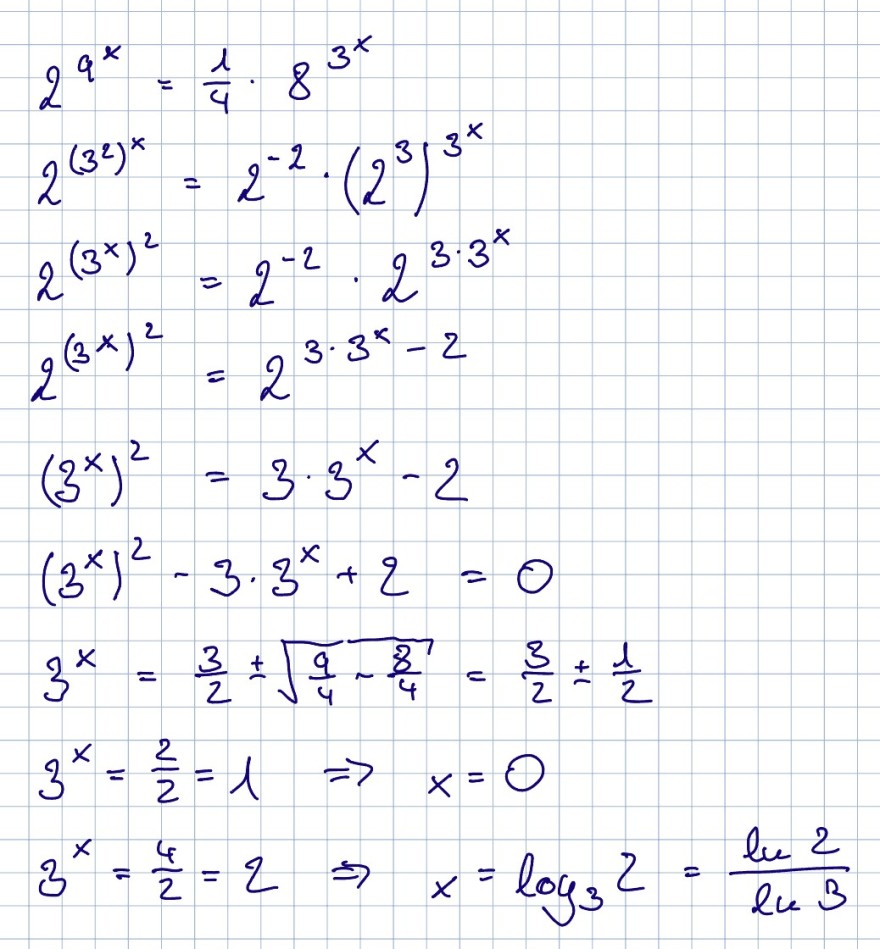 2^(9^x) = 1/4 · 8^(3^x)
2^((3^2)^x) = 2^(-2) · (2^3)^(3^x)
2^((3^x)^2) = 2^(-2) · 2^(3·3^x)
2^((3^x)^2) = 2^(3·3^x - 2)
(3^x)^2 = 3·3^x - 2
(3^x)^2 - 3·3^x + 2 = 0
3^x = 3/2 ± √(9/4 - 8/4) = 3/2 ± 1/2
3^x = 2/2 = 1 ⇒ x = 0
3^x = 4/2 = 2 ⇒ x = log_3 2 = ln 2 / ln 3